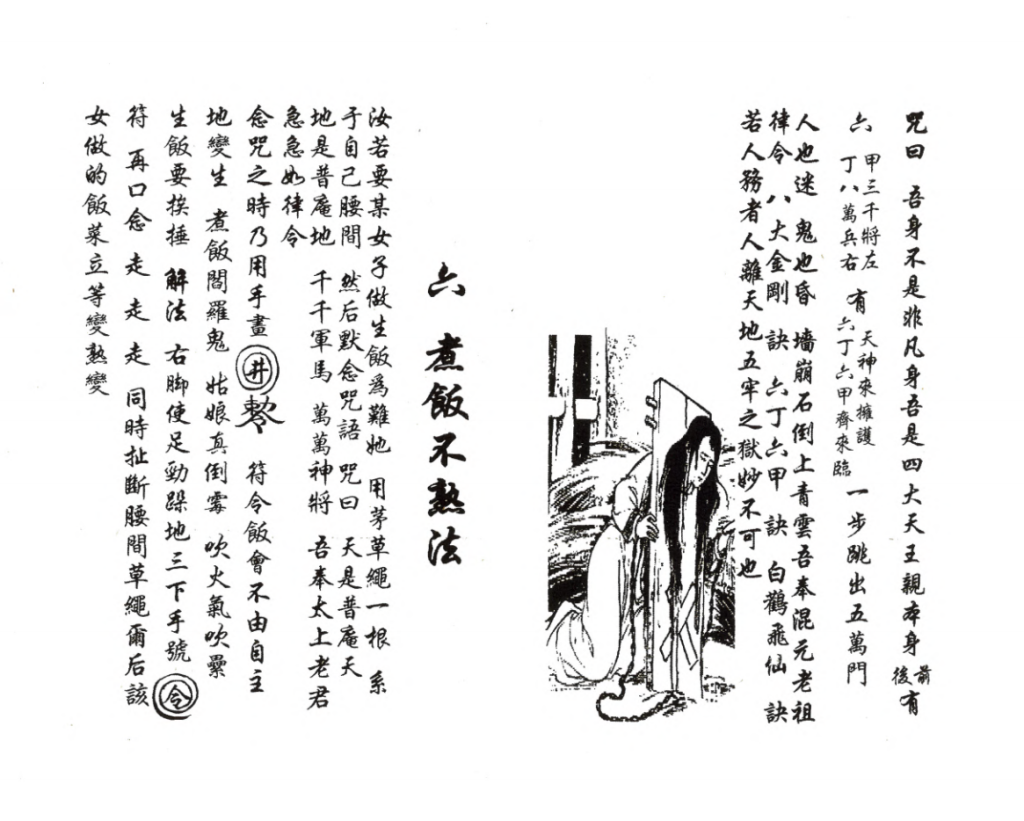 咒曰 吾身不是非凡身吾是四大天王親本身 前後有
六甲三千將左 六丁八萬兵右 有 天神來擁護 六丁六甲齊來臨 一步跳出五萬門
人也迷 鬼也昏 墻崩石倒上青雲吾奉混元老祖
律令 八大金剛 訣 六丁六甲 訣 白鶴飛仙 訣
若人務者人離天地五牢之獄妙不可也
六 煮飯不熟法
汝若要某女子做生飯爲難她 用茅草繩一根 系
于自己腰間 然后默念咒語 咒曰 天是普庵天
地是普庵地 千千軍馬 萬萬神將 吾奉太上老君
急急如律令
念咒之時乃用手畫 井 符令飯會不由自主
地變生 煮飯閻羅鬼 姑娘真倒霉 吹火氣吹暈
生飯要挨捶 解法 右脚使足勁跺地三下手號 令
符 再口念 走 走 走 同時扯斷腰間草繩爾后該
女做的飯菜立等變熟變